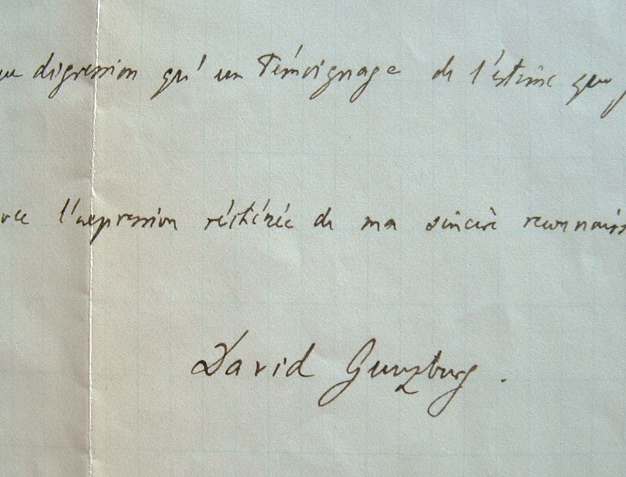 digression qu'un Témoignage de l'estime que
l'expression réitérée de ma sincère reconnaiss
David Gunzburg.